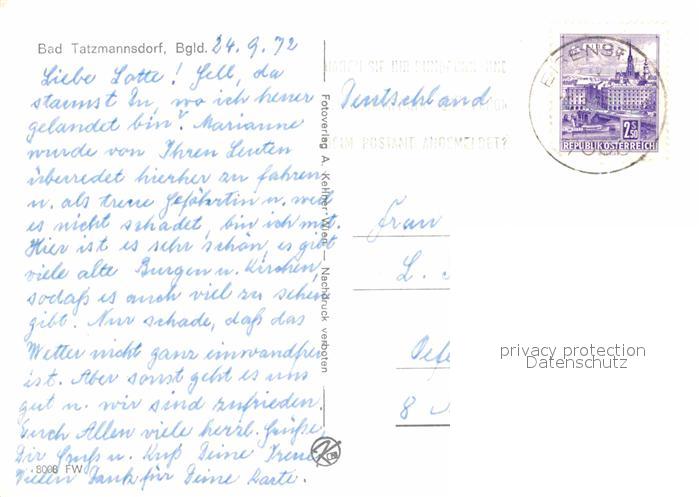 Bad Tatzmannsdorf, Bgld. 24.9.72
Liebe Lotte! Gell, da
staunst Du, wo ich heuer
gelandet bin? Marianne
wurde von Ihren Leuten
überredet hierher zu fahren
u. als treue Gefährtin u. weil
es nicht schadet, bin ich mit.
Hier ist es sehr schön, es gibt
viele alte Burgen u. Kirchen,
sodaß es auch viel zu sehen
gibt. Nur schade, daß das
Wetter nicht ganz einwandfrei
ist. Aber sonst geht es uns
gut u. wir sind zufrieden.
Euch Allen viele herzl. Grüße
Dir Gruß u. Kuß Deine Irene
Vielen Dank für Deine Karte.
8098 FW
Fotoverlag A. Kellner Wien — Nachdruck verboten
IM POSTAMT ANGEMELDET?
2 S 50
REPUBLIK ÖSTERREICH
Deutschland
Frau
L.
8
privacy protection
Datenschutz